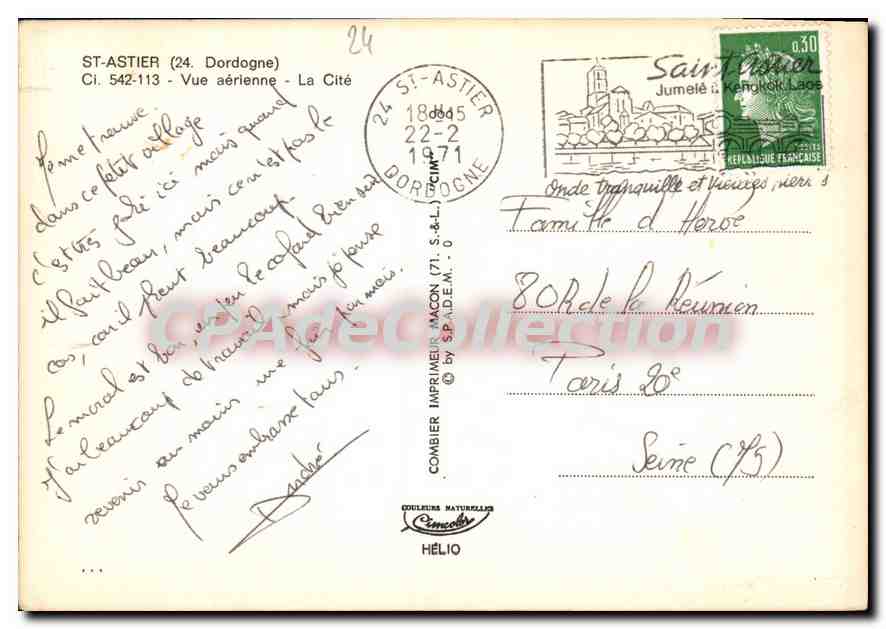 24
ST-ASTIER (24. Dordogne)
Ci. 542-113 - Vue aérienne - La Cité
Je me trouve
dans ce petit village
c'est très joli ici mais quand
il fait beau, mais ce n'est pas le
cas, car il pleut beaucoup.
Le moral est bon, un peu le cafard bien sûr
J'ai beaucoup de travail, mais je pense
revenir au moins une fois par mois.
Je vous embrasse tous.
André
...
24 ST-ASTIER
18H45
22-2
1971
DORDOGNE
Saint Astier
Jumelé à Kengkok Laos
Onde tranquille et Vieilles pierres
0,30
REPUBLIQUE FRANÇAISE
COMBIER IMPRIMEUR MACON (71. S.-&-L.) "CIM"
© by S.P.A.D.E.M. - 0
Famille d'Hervé
80 R de la Réunion
Paris 20e
Seine (75)
COULEURS NATURELLES
Cimcolor
HÉLIO
CPAdeCollection